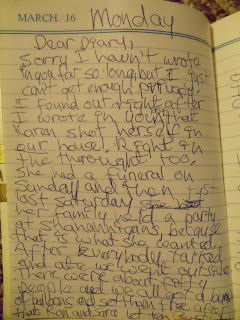 MARCH 16 Monday
Dear Diary,
Sorry I haven't wrote
in you for so long but I just
can't get enough privacy.
I found out right after
I wrote in you that
Karen shot herself in
our house. Right in
the throught too.
She had a funeral on
Sunday and then
last saturday
her family held a party
at Shanannigans, because
that is what she wanted.
After Everybody talked
and ate we went outside
There were about fifty
people and we all got a
of balloons and set them free
thats Ron and